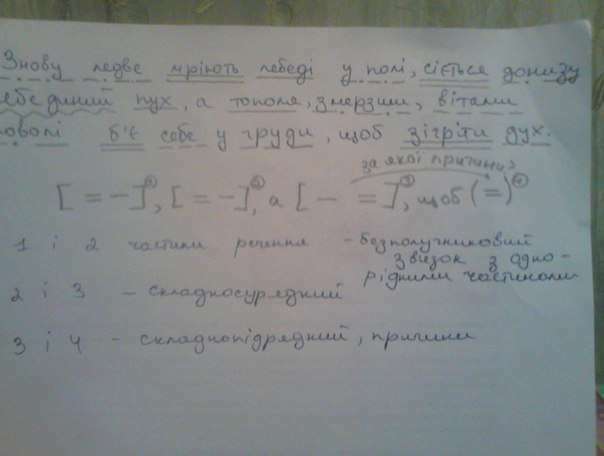 Знову ледве мріють лебеді у полі, сіється донизу
лебединий пух, а тополя, змерзши, вітами
поволі б'є себе у груди, щоб зігріти дух.
за якої причини?
[ = – ]①, [ = – ]②, а [ – = ]③, щоб ( = )④
1 і 2 частини речення – безполучниковий
звязок з одно-
рідними частинами
2 і 3 – складносурядний
3 і 4 – складнопідрядний, причини